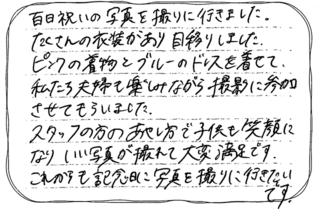 百日祝いの写真を撮りに行きました。
たくさんの衣装があり目移りしました。
ピンクの着物とブルーのドレスを着せて、
私たち夫婦も楽しみながら撮影に参加
させてもらいました。
スタッフの方のあやし方で子供も笑顔に
なりいい写真が撮れて大変満足です。
これからも記念日に写真を撮りに行きたい
です。